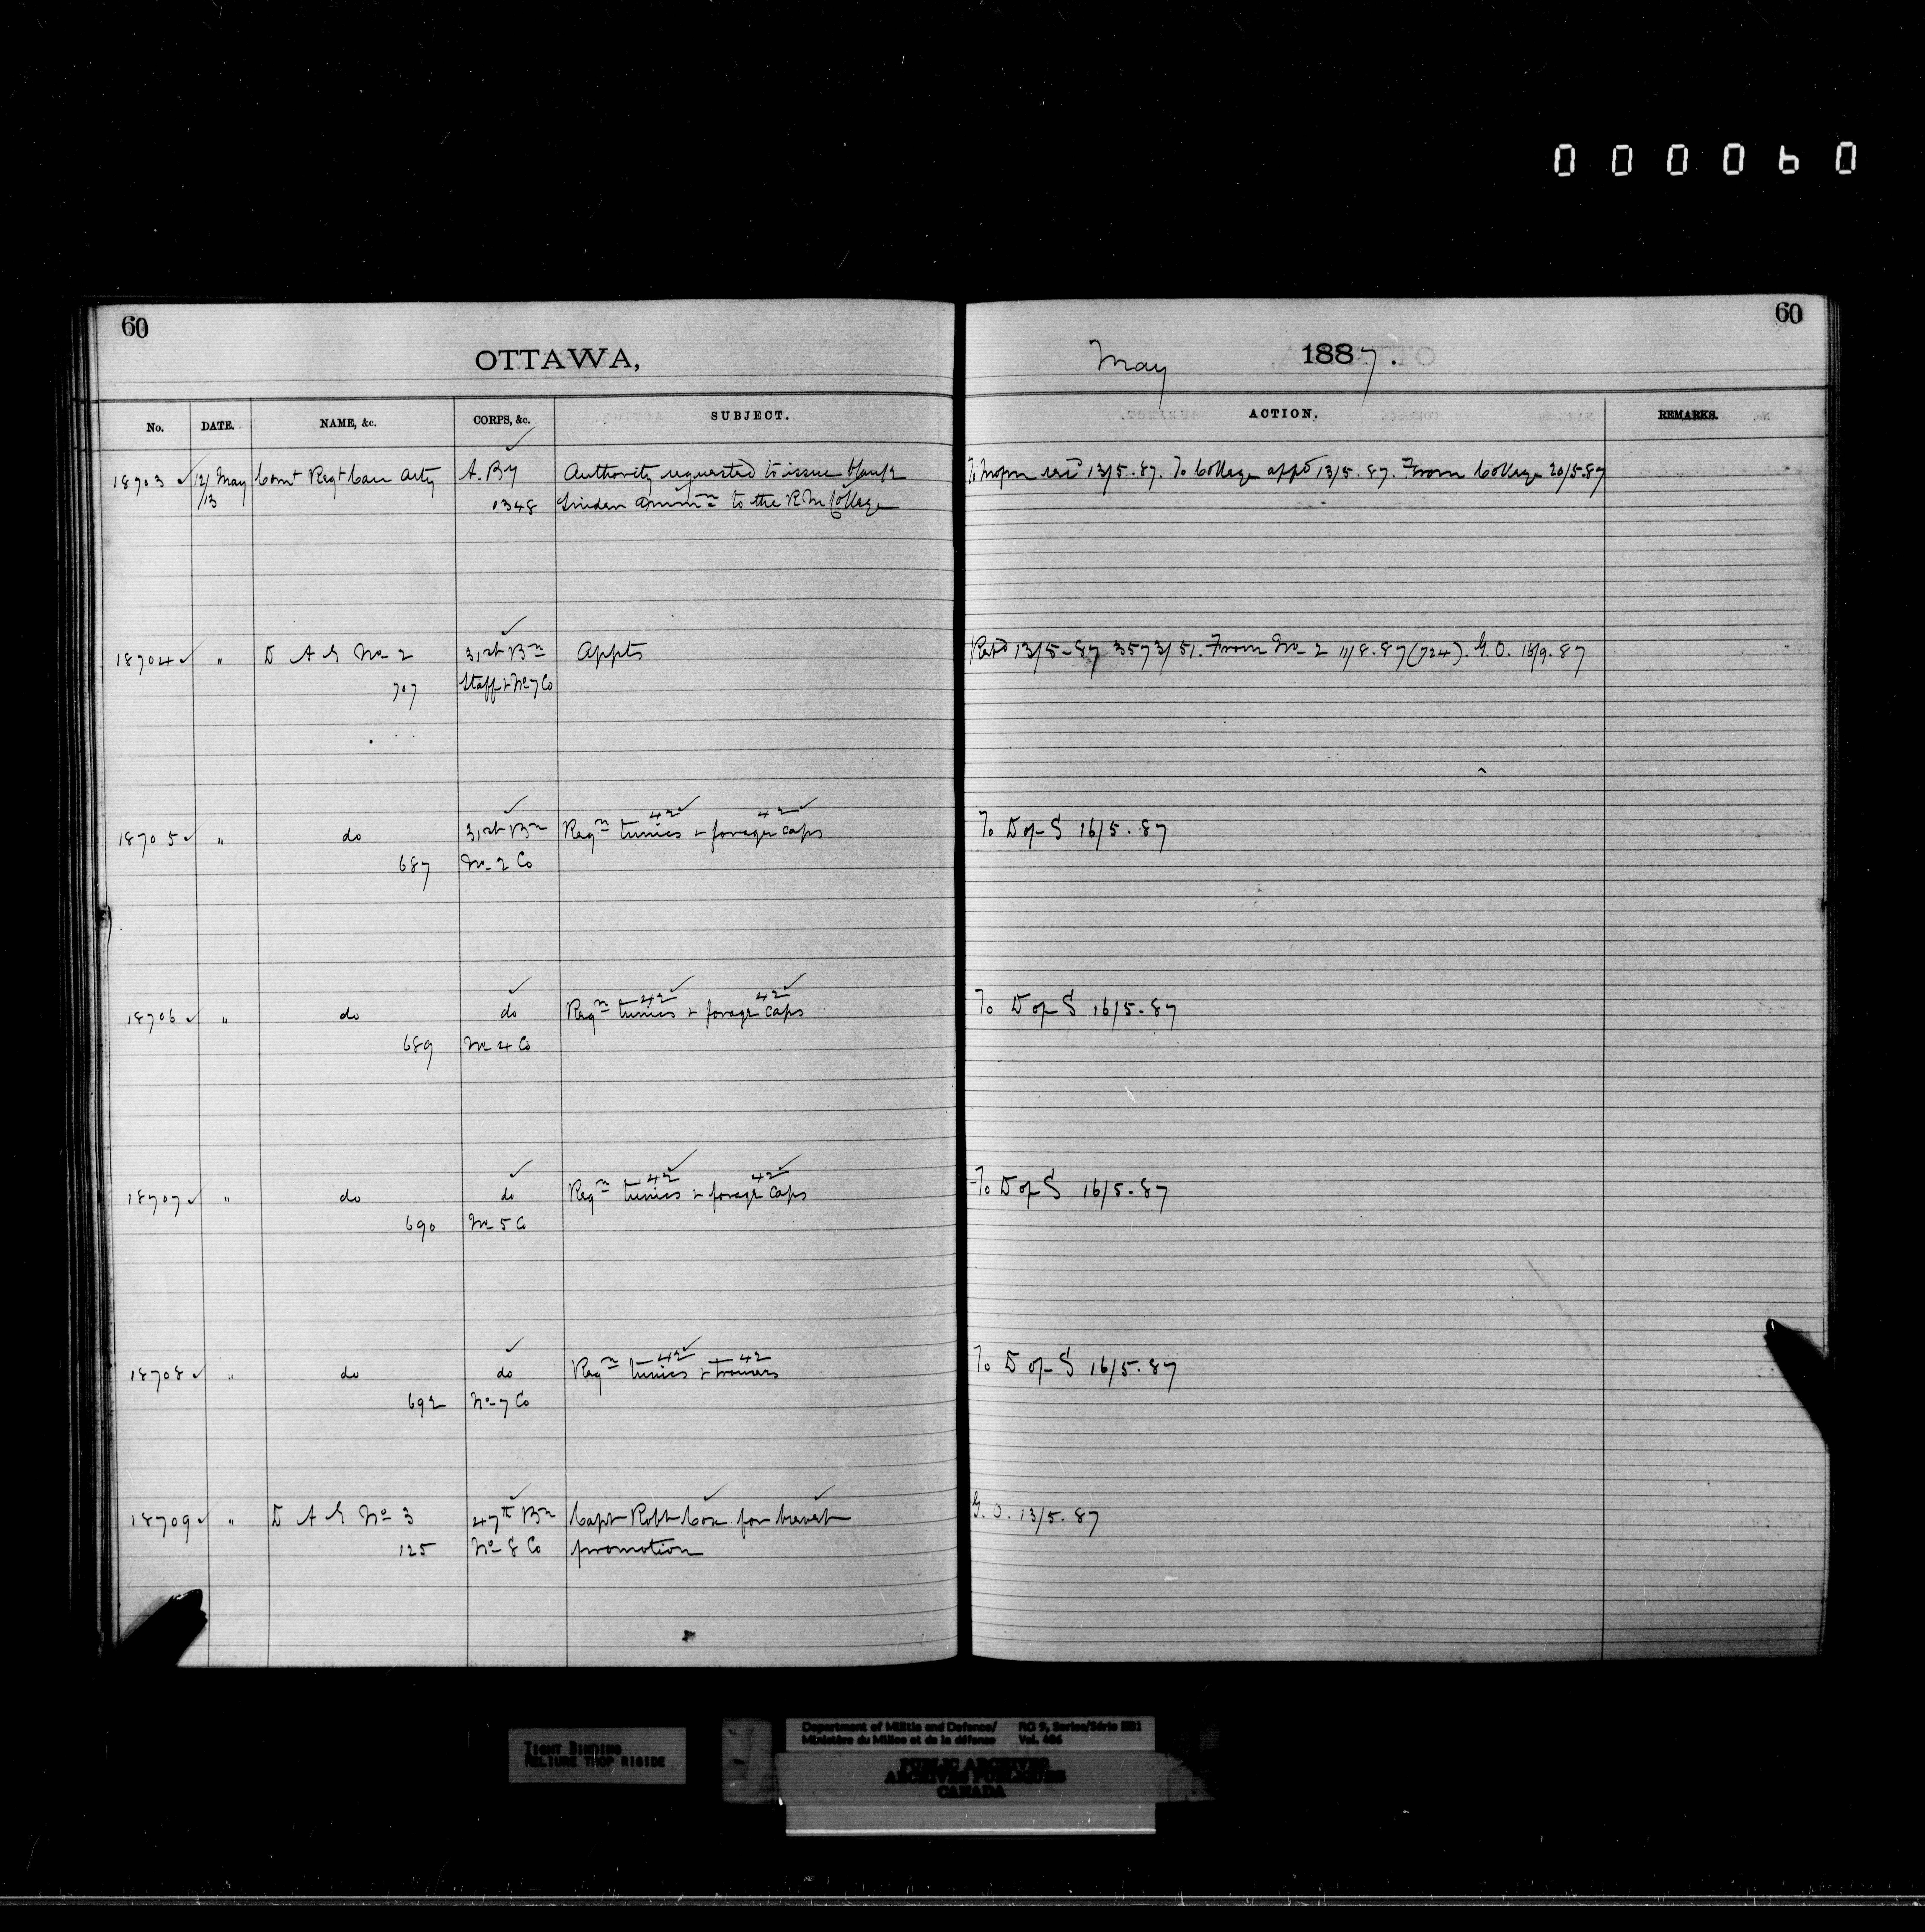 000060
60
60
OTTAWA,
May 1887.
No. DATE. NAME, &c. CORPS, &c. SUBJECT. ACTION. REMARKS.
18703 12/13 May Comt Regt Can Arty A. By Authority requested to issue blank To Mopm 13/5.87. To College appd 13/5.87. From College 20/5.87
0348 Snider Ammn to the R M College
18704 " D A G No 2 31st Bn Appts Retd 13/5-87 3573/51. From No 2 11/8.87 (724). G.O. 16/9.87
707 Staff & No 7 Co
42 42
18705 " do 31st Bn Reqn tunics & forage caps To D of S 16/5.87
687 No 2 Co
42 42
18706 " do do Reqn tunics & forage caps To D of S 16/5.87
689 No 4 Co
42 42
18707 " do do Reqn tunics & forage caps To D of S 16/5.87
690 No 5 Co
42 42
18708 " do do Reqn tunics & trousers To D of S 16/5.87
692 No 7 Co
18709 " D A G No 3 47th Bn Capt Robt Cox for brevet G.O. 13/5.87
125 No 8 Co promotion
TIGHT BINDING
RELIURE TROP RIGIDE
Department of Militia and Defence/ RG 9, Series/Série IIB1
Ministère du Milice et de la défense Vol. 406
PUBLIC ARCHIVES
ARCHIVES PUBLIQUES
CANADA